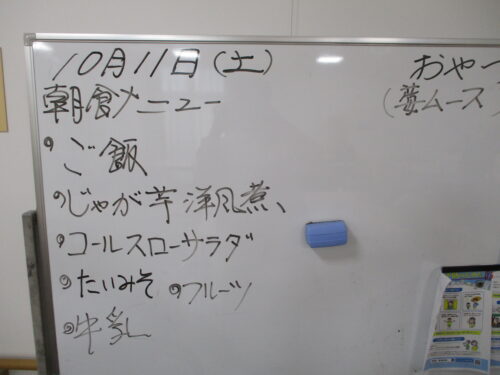 10月11日(土)
朝食メニュー
◎ご飯
◎じゃが芋洋風煮、
◎コールスローサラダ
◎たいみそ ◎フルーツ
◎牛乳
おやつ
ムース